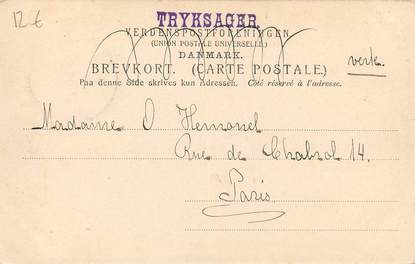 12 €
TRYKSAGER.
VERDENSPOSTFORENINGEN
(UNION POSTALE UNIVERSELLE.)
DANMARK.
BREVKORT. (CARTE POSTALE.)
Paa denne Side skrives kun Adressen. Côté réservé à l'adresse.
verte.
Madame O
Rue de Chabrol 14.
Paris